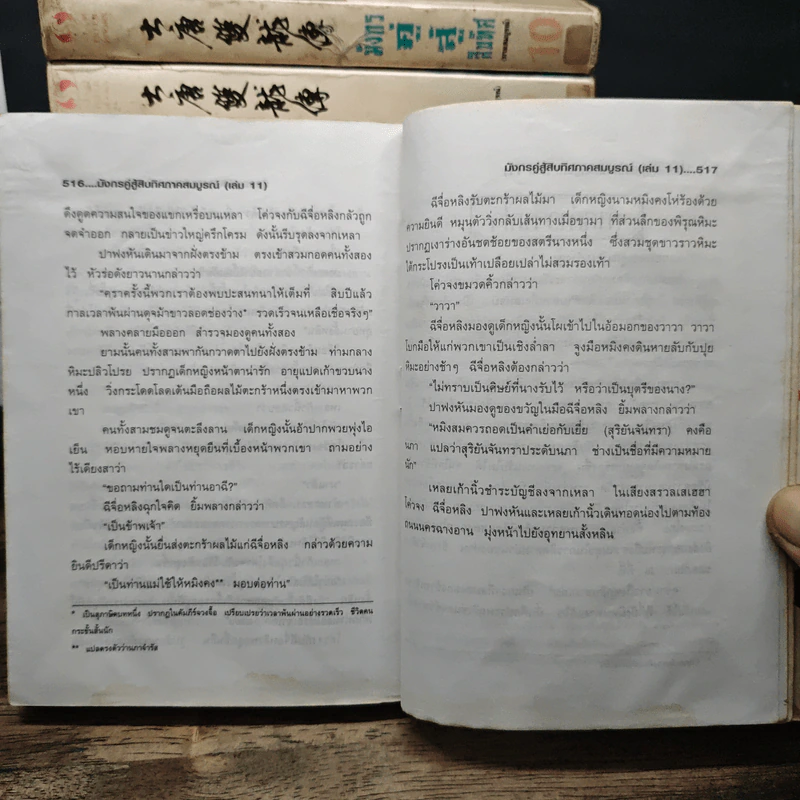 大唐雙龍傳
มังกรคู่สู้สิบทิศ
10
大唐雙龍傳
516....มังกรคู่สู้สิบทิศภาคสมบูรณ์ (เล่ม 11)
ดึงดูดความสนใจของแขกเหรื่อบนเหลา โค่วจงกับฉีจื่อหลิงกลัวถูก
จดจำออก กลายเป็นข่าวใหญ่ครึกโครม ดังนั้นรีบรุดลงจากเหลา
ปาฟงหันเดินมาจากฝั่งตรงข้าม ตรงเข้าสวมกอดคนทั้งสอง
ไว้ หัวร่อดังยาวนานกล่าวว่า
"คราครั้งนี้พวกเราต้องพบปะสนทนาให้เต็มที่ สิบปีแล้ว
กาลเวลาพ้นผ่านดุจม้าขาวลอดช่องว่าง* รวดเร็วจนเหลือเชื่อจริงๆ"
พลางคลายมือออก สำรวจมองดูคนทั้งสอง
ยามนั้นคนทั้งสามพากันกวาดตาไปยังฝั่งตรงข้าม ท่ามกลาง
หิมะปลิวโปรย ปรากฏเด็กหญิงหน้าตาน่ารัก อายุแปดเก้าขวบนาง
หนึ่ง วิ่งกระโดดโลดเต้นมือถือผลไม้ตะกร้าหนึ่งตรงเข้ามาหาพวก
เขา
คนทั้งสามชมดูจนตะลึงลาน เด็กหญิงนั้นอ้าปากพวยพุ่งไอ
เย็น หอบหายใจพลางหยุดยืนที่เบื้องหน้าพวกเขา ถามอย่าง
ไร้เดียงสาว่า
"ขอถามท่านใดเป็นท่านอาฉี?"
ฉีจื่อหลิงฉุกใจคิด ยิ้มพลางกล่าวว่า
"เป็นข้าพเจ้า"
เด็กหญิงนั้นยื่นส่งตะกร้าผลไม้แก่ฉีจื่อหลิง กล่าวด้วยความ
ยินดีปรีดาว่า
"เป็นท่านแม่ใช้ให้หมิงคง** มอบต่อท่าน"
* เป็นสุภาษิตบทหนึ่ง ปรากฏในคัมภีร์จวงจื้อ เปรียบเปรยว่าเวลาพ้นผ่านอย่างรวดเร็ว ชีวิตคน
กระชั้นสั้นนัก
** แปลตรงตัวว่านภาจำรัส
มังกรคู่สู้สิบทิศภาคสมบูรณ์ (เล่ม 11)....517
ฉีจื่อหลิงรับตะกร้าผลไม้มา เด็กหญิงนามหมิงคงโห่ร้องด้วย
ความยินดี หมุนตัววิ่งกลับเส้นทางเมื่อขามา ที่ส่วนลึกของพิรุณหิมะ
ปรากฏเงาร่างอันชดช้อยของสตรีนางหนึ่ง ซึ่งสวมชุดขาวราวหิมะ
ใต้กระโปรงเป็นเท้าเปลือยเปล่าไม่สวมรองเท้า
โค่วจงขมวดคิ้วกล่าวว่า
"วาวา"
ฉีจื่อหลิงมองดูเด็กหญิงนั้นโผเข้าไปในอ้อมอกของวาวา วาวา
โบกมือให้แก่พวกเขาเป็นเชิงล่ำลา จูงมือหมิงคงเดินหายลับกับปุย
หิมะอย่างช้าๆ ฉีจื่อหลิงต้องกล่าวว่า
"ไม่ทราบเป็นศิษย์ที่นางรับไว้ หรือว่าเป็นบุตรีของนาง?"
ปาฟงหันมองดูของขวัญในมือฉีจื่อหลิง ยิ้มพลางกล่าวว่า
"หมิงสมควรถอดเป็นคำเย่อกับเยี่ย (สุริยันจันทรา) คงคือ
นภา แปลว่าสุริยันจันทราประดับนภา ช่างเป็นชื่อที่มีความหมาย
นัก"
เหลยเก้านิ้วชำระบัญชีลงจากเหลา ในเสียงสรวลเสเฮฮา
โค่วจง ฉีจื่อหลิง ปาฟงหันและเหลยเก้านิ้วเดินทอดน่องไปตามท้อง
ถนนนครฉางอาน มุ่งหน้าไปยังอุทยานสั้งหลิน